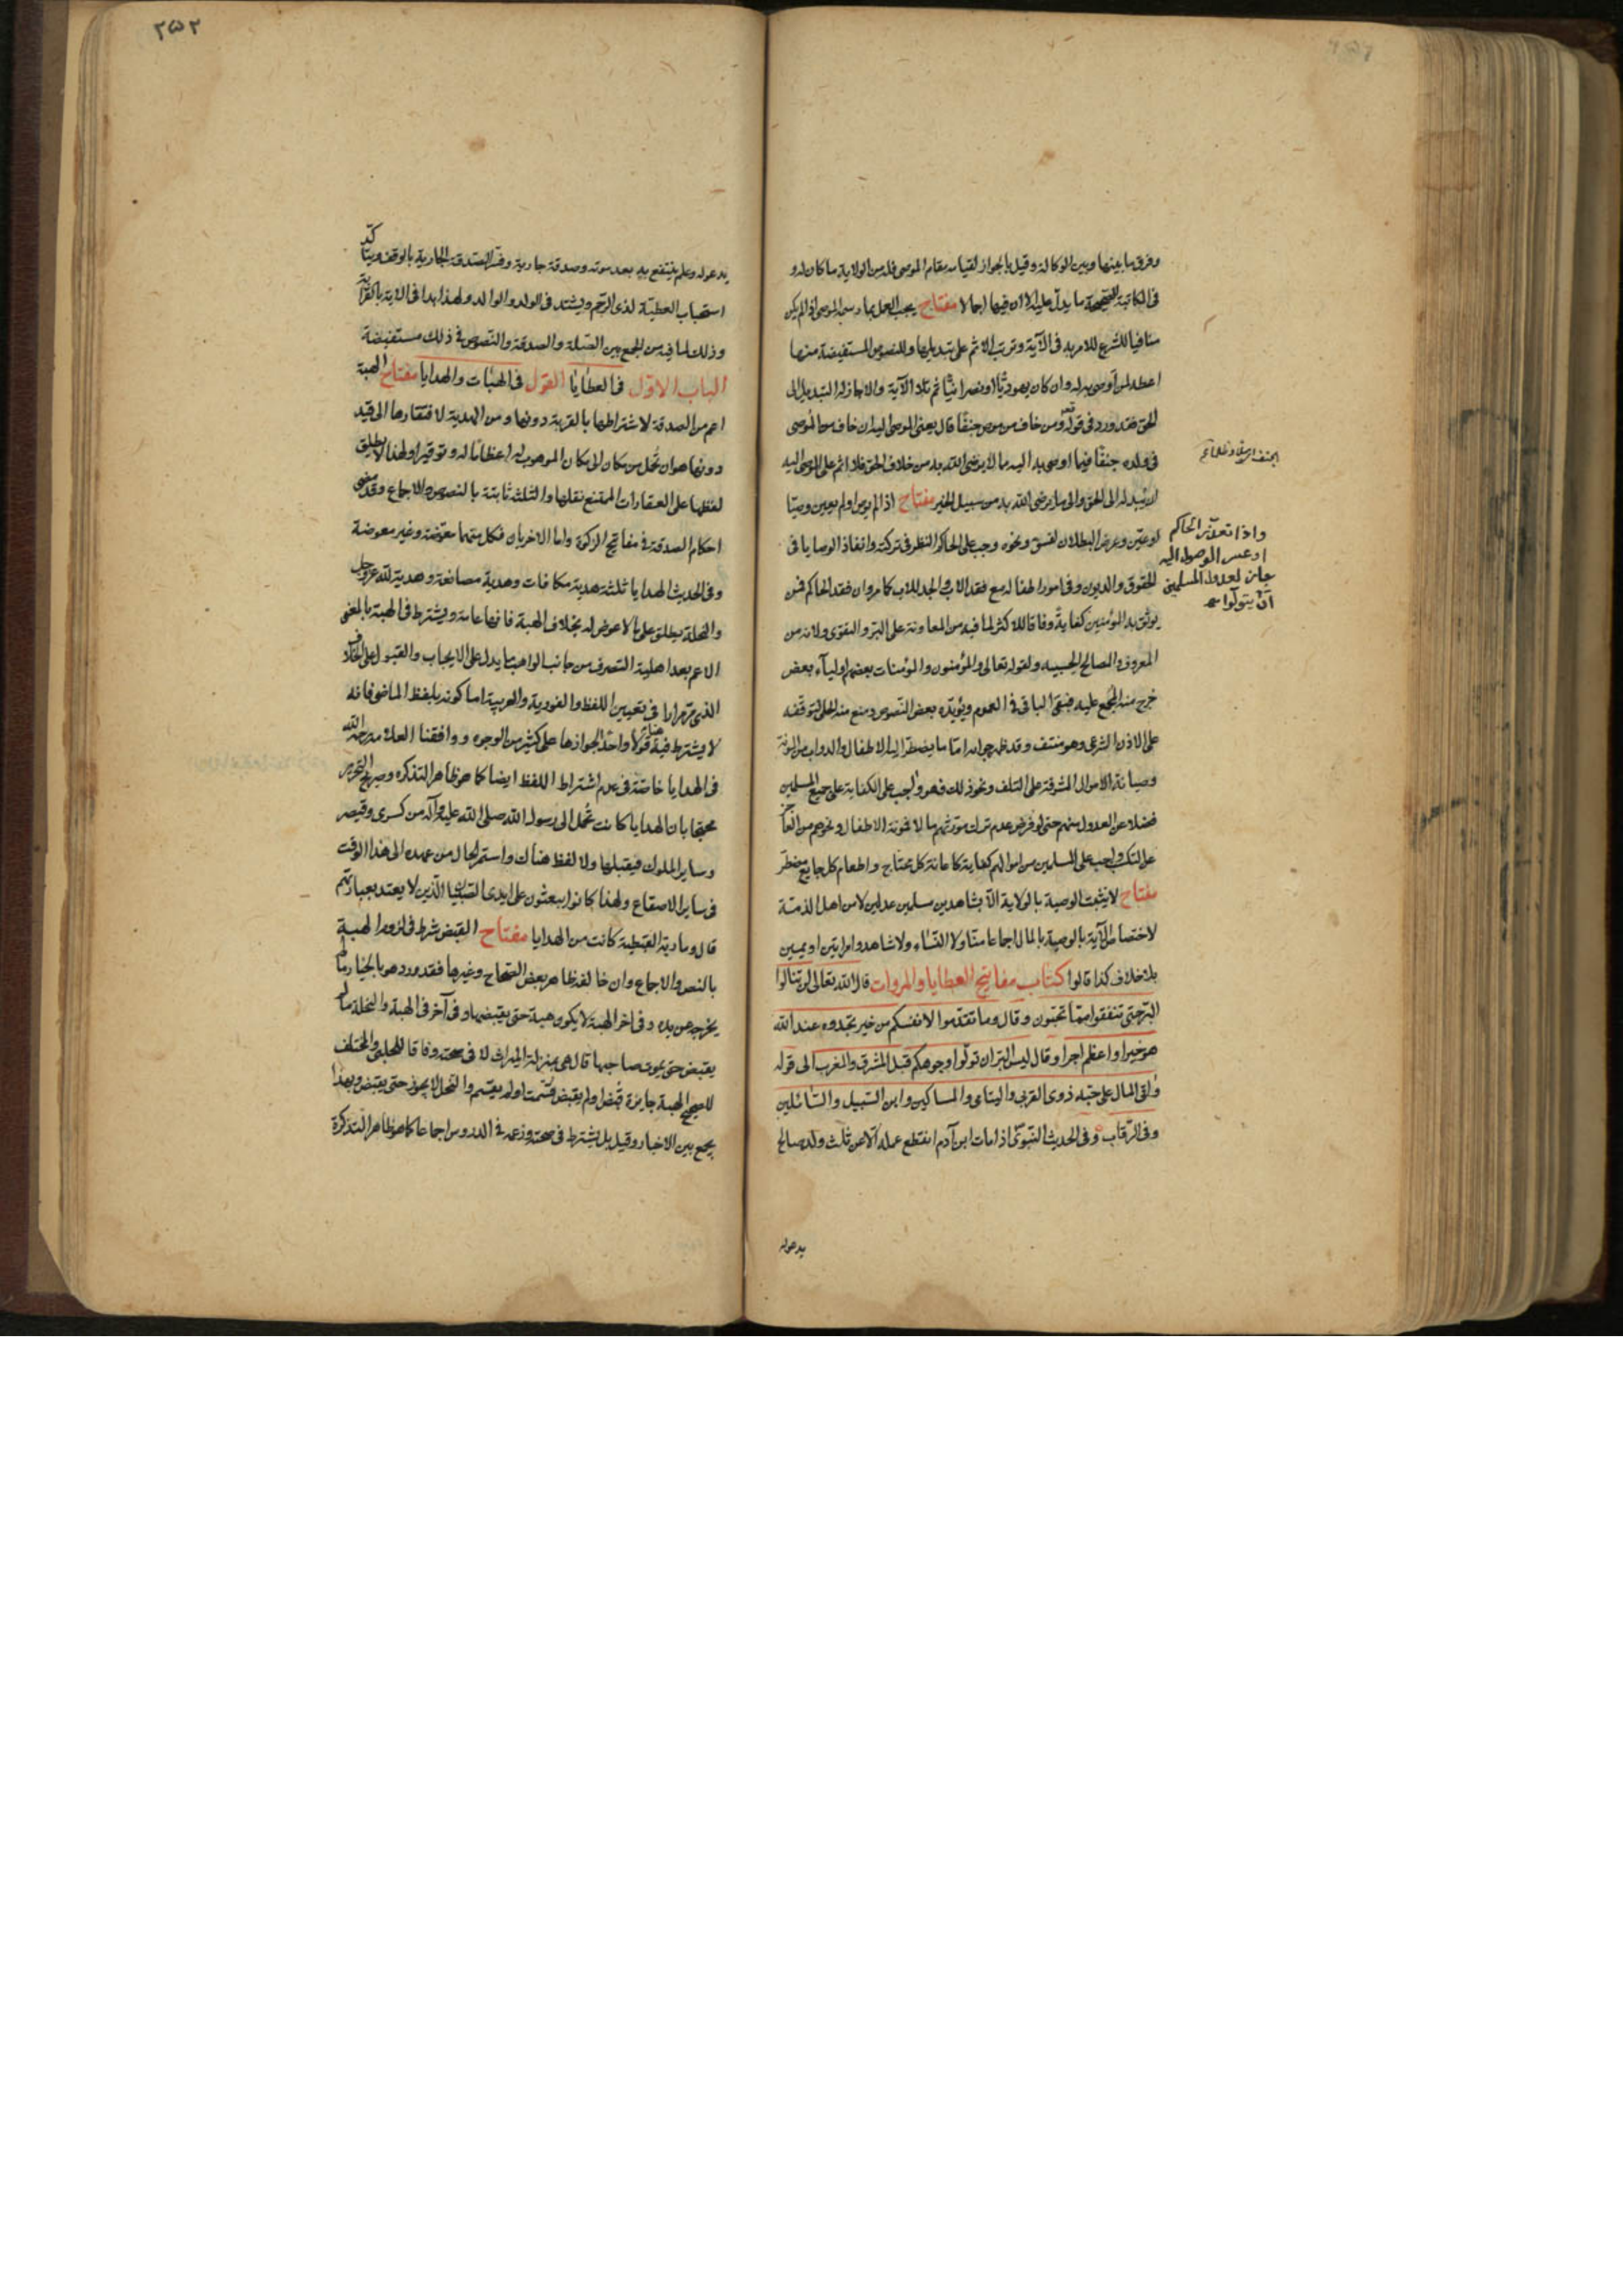 وفرق ما بينها وبين الوكالة وقيل بالجواز لقيامه مقام الموصي فله من الولاية ما كان له و
في المكاتبة الصحيحة ما يدل عليه الا ان فيها اجمالا مفتاح يجب العمل بما رسمه الموصي اذا لم يكن
منافيا للشرع للامر به في الآية وترتب الاثم على تبديلها وللنصوص المستفيضة منها
اعطه لمن اوصى به له وان كان يهوديا او نصرانيا ثم تلا الآية والا جاز له التبديل الى
الحق فقد ورد في قوله تعالى ومن خاف من موص جنفا قال يعني الموصى اليه ان خاف من الموصي
في ولده جنفا فيما اوصى به اليه مما لا يرضى الله به من خلاف الحق فلا اثم على الموصى اليه
ان يبدله الى الحق والى ما يرضى الله به من سبيل الخير مفتاح اذا لم يوص او لم يعين وصيا
او عين وعرض البطلان لفسق ونحوه وجب على الحاكم النظر في تركته وانفاذ الوصايا في
الحقوق والديون وفي امور اطفاله مع فقد الاب والجد للاب كما مر وان فقد الحاكم فمن
يوثق به المؤمنين كفاية وفاقا للاكثر لما فيه من المعاونة على البر والتقوى ولانه من
المعروف والمصالح الحسبيه ولقوله تعالى والمؤمنون والمؤمنات بعضهم اولياء بعض
خرج منه المجمع عليه فبقى الباقي في العموم ويؤيده بعض النصوص ومنع منه الحلي لتوقفه
على الاذن الشرعي وهو منتف وقد ظهر جوابه اما ما يضطر اليه الاطفال والدواب من المؤنة
وصيانة الاموال المشرفة على التلف ونحو ذلك فهو واجب على الكفاية على جميع المسلمين
فضلا عن العدول منهم حتى لو فرض عدم ترك مورثهم مالا لمؤنة الاطفال ونحوهم من العجز
عن التكسب واجب على المسلمين من اموالهم كفاية كاعانة كل محتاج واطعام كل جايع مضطر
مفتاح لا يثبت الوصية بالولاية الا بشاهدين مسلمين عدلين لا من اهل الذمة
لاختصاص الآية بالوصية بالمال اجماعا منا ولا النساء ولا شاهد وامراتين او يمين
بلا خلاف كذا قالوا كتاب مفاتيح العطايا والمروات قال الله تعالى لن تنالوا
البر حتى تنفقوا مما تحبون وقال وما تقدموا لانفسكم من خير تجدوه عند الله
هو خيرا واعظم اجرا وقال ليس البر ان تولوا وجوهكم قبل المشرق والمغرب الى قوله
وآتى المال على حبه ذوى القربى واليتامى والمساكين وابن السبيل والسائلين
وفي الرقاب وفي الحديث النبوي اذا مات ابن آدم انقطع عمله الا عن ثلث ولد صالح
يدعوله
واذا تعذر الحاكم
جاز لعدول المسلمين
ان يتولوا
٢٥٢
يدعو له وعلم ينتفع به بعد موته وصدقة جارية وفسر الصدقة الجارية بالوقف ويتاكد
استحباب العطية لذي الرحم ويشتد في الولد والوالد ولهذا بدا في الآية بالقرابة
وذلك لما فيه من الجمع بين الصلة والصدقة والنصوص في ذلك مستفيضة
الباب الاول في العطايا القول في الهبات والهدايا مفتاح الهبة
اعم من الصدقة لاشتراطها بالقربة دونها ومن الهدية لافتقارها الى قيد
دونها هو ان تحمل من مكان الى مكان الموهوب له اعظاما له وتوقيرا ولهذا لا يطلق
لفظها على العقارات الممتنع نقلها والثلث ثابتة بالنصوص والاجماع وقد مضى
احكام الصدقة في مفاتيح الزكوة واما الاخريان فكل منهما معوضة وغير معوضة
وفي الحديث الهدايا ثلثة هدية مكافات وهدية مصانعة وهدية لله عز وجل
والنحلة يطلق على ما لا عوض له بخلاف الهبة فانها عامة ويشترط في الهبة بالمعنى
الاعم بعد اهلية التصرف من جانب الواهب ما يدل على الايجاب والقبول على الخلاف
الذي مر مرارا في تعيين اللفظ والفورية والعربية اما كونه بلفظ الماضي فانه
لا يشترط فيه قولا واحدا لجوازها على كثير من الوجوه ووافقنا العلامة رحمه الله
في الهدايا خاصة في عدم اشتراط اللفظ ايضا كما هو ظاهر التذكره وصريح التحرير
محتجا بان الهدايا كانت تحمل الى رسول الله صلى الله عليه وآله من كسرى وقيصر
وساير الملوك فيقبلها ولا لفظ هناك واستمر الحال من عهده الى هذا الوقت
في ساير الاصقاع ولهذا كانوا يبعثون على ايدى الصبيان الذين لا يعتد بعبارتهم
قال ومارية القبطية كانت من الهدايا مفتاح القبض شرط في لزوم الهبة
بالنص والاجماع وان خالفه ظاهر بعض الصحاح وغيرها فقد ورد هو بالخيار ما لم
يخرج عن يده وفي اخر الهبة لا يكون هبة حتى يقبضها وفي آخر في الهبة والنحلة ما لم
يقبض حتى يموت صاحبها قال هي بمنزلة الميراث لا في صحته وفاقا للحلبي والمختلف
للصحيح الهبة جايزة قبض او لم يقبض قسمت او لم يقسم والنحل لا يجوز حتى يقبض وبهذا
يجمع بين الاخبار وقيل بل يشترط في صحته وزعمه في الدروس اجماعا كما هو ظاهر التذكرة